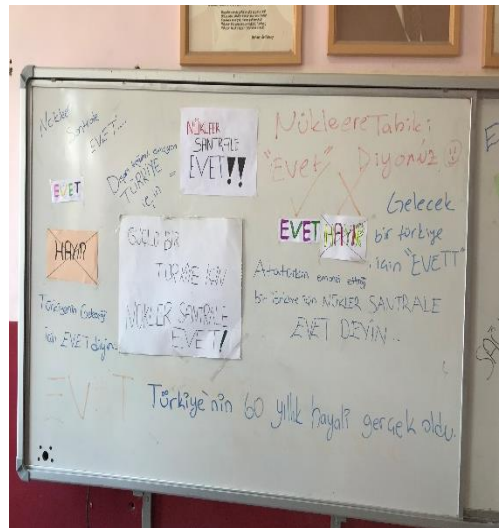 Nükleer
Santrale
EVET...
EVET
Dışa bağımlı olmayan
TÜRKİYE
için
NÜKLER
SANTRALE
EVET!!
Nükleere Tabiki
"Evet" Diyoruz
EVET HAYIR
Gelecek
bir türkiye
için "EVETT"
HAYIR
GÜÇLÜ BİR
TÜRKİYE İÇİN
NÜKLER SANTRALE
EVET!
Atatürkün emanet ettiği
bir ülke için NÜKLER SANTRALE
EVET DEYİN..
Türkiyenin geleceği
için EVET diyin
EVET
Türkiye'nin 60 yıllık hayali gerçek oldu.